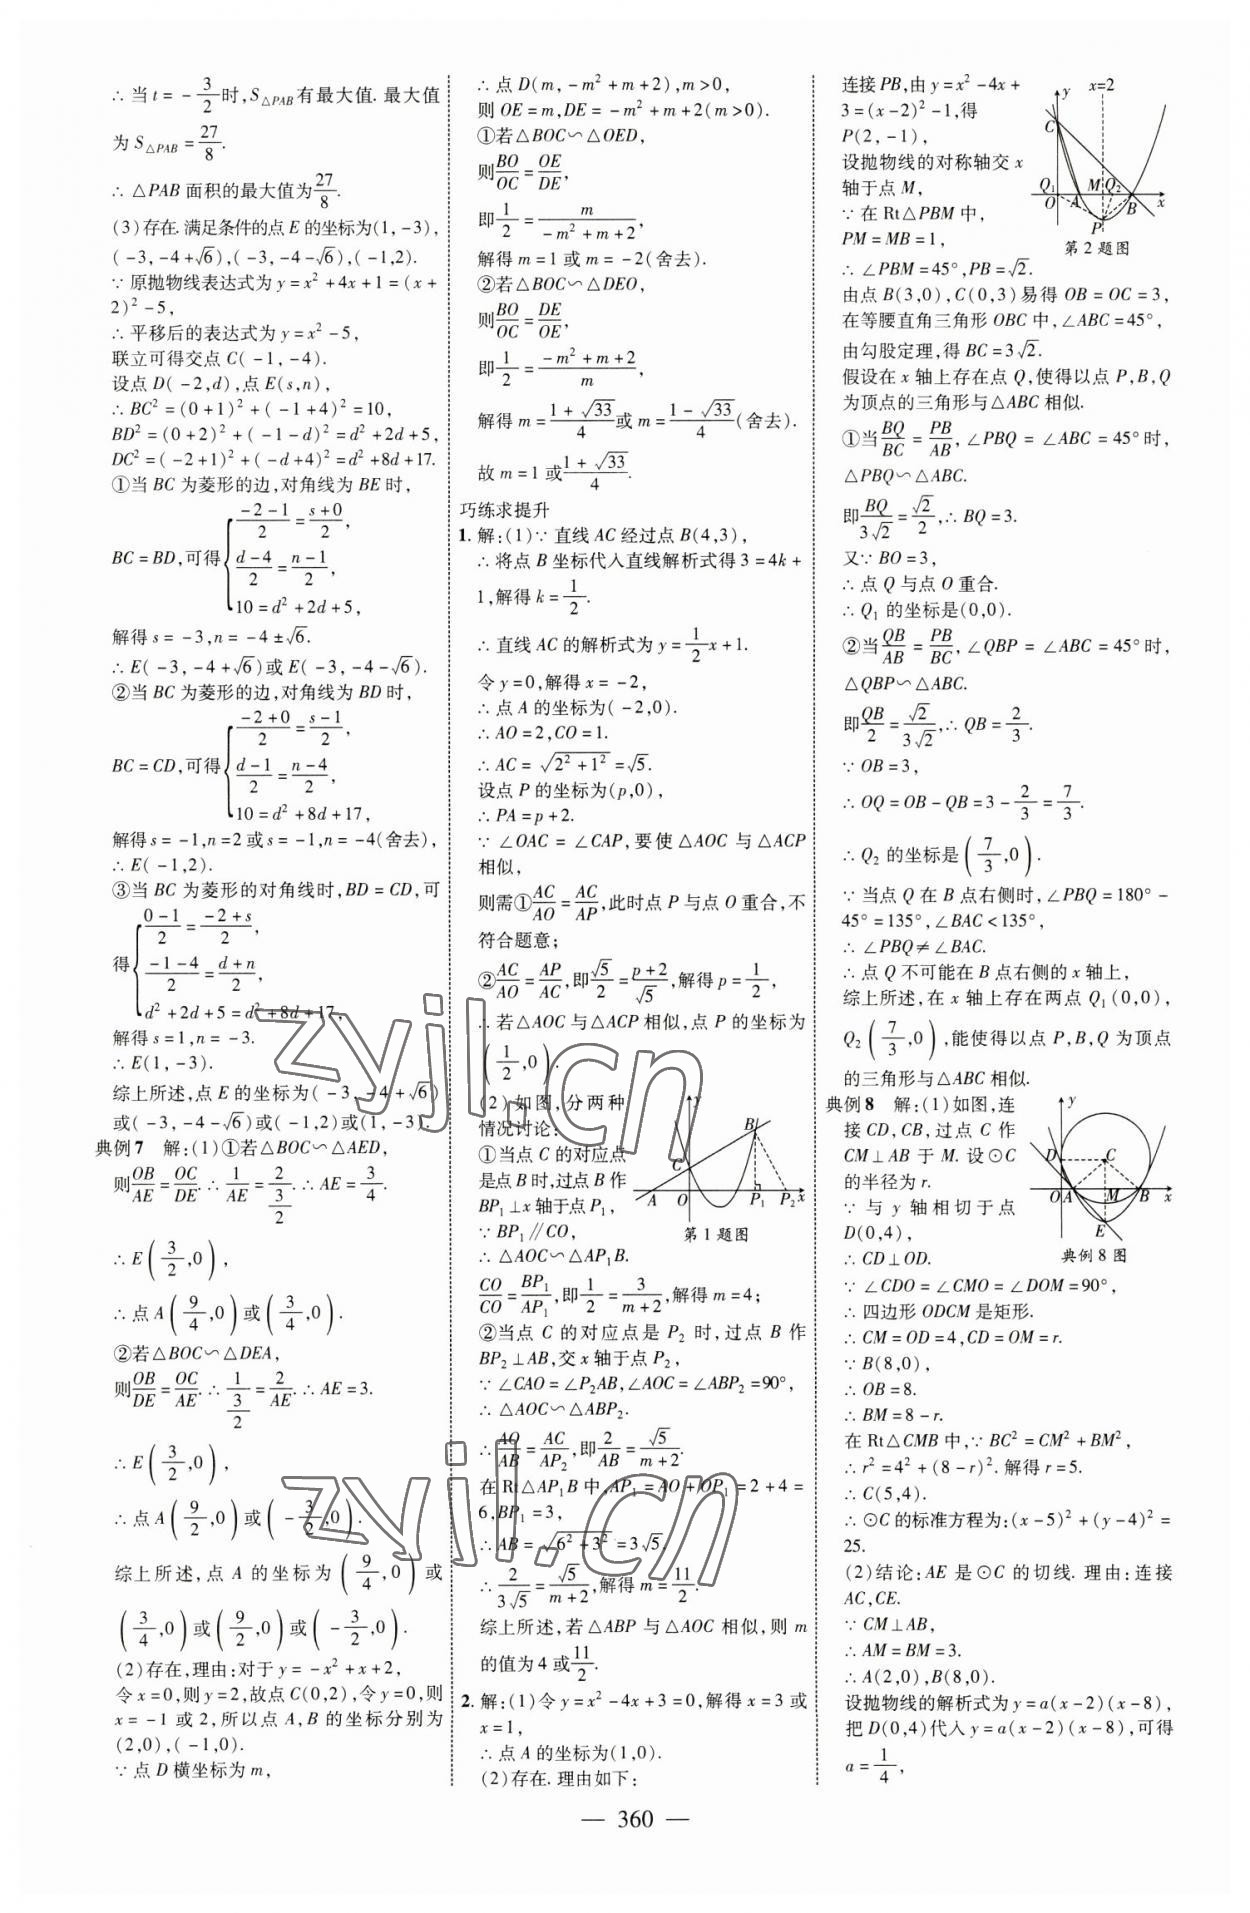 ∴当t=-3/2时,S△PAB有最大值.最大值
为S△PAB=27/8.
∴△PAB面积的最大值为27/8.
(3)存在.满足条件的点E的坐标为(1,-3),
(-3,-4+√6),(-3,-4-√6),(-1,2).
∵原抛物线表达式为y=x²+4x+1=(x+
2)²-5,
∴平移后的表达式为y=x²-5,
联立可得交点C(-1,-4).
设点D(-2,d),点E(s,n),
∴BC²=(0+1)²+(-1+4)²=10,
BD²=(0+2)²+(-1-d)²=d²+2d+5,
DC²=(-2+1)²+(-d+4)²=d²+8d+17.
①当BC为菱形的边,对角线为BE时,
BC=BD,可得{(-2-1)/2=(s+0)/2,
(d-4)/2=(n-1)/2,
10=d²+2d+5,
解得s=-3,n=-4±√6.
∴E(-3,-4+√6)或E(-3,-4-√6).
②当BC为菱形的边,对角线为BD时,
BC=CD,可得{(-2+0)/2=(s-1)/2,
(d-1)/2=(n-4)/2,
10=d²+8d+17,
解得s=-1,n=2或s=-1,n=-4(舍去),
∴E(-1,2).
③当BC为菱形的对角线时,BD=CD,可
得{(0-1)/2=(-2+s)/2,
(-1-4)/2=(d+n)/2,
d²+2d+5=d²+8d+17,
解得s=1,n=-3.
∴E(1,-3).
综上所述,点E的坐标为(-3,-4+√6)
或(-3,-4-√6)或(-1,2)或(1,-3).
典例7 解:(1)①若△BOC∽△AED,
则OB/AE=OC/DE.∴1/AE=2/(3/2).∴AE=3/4.
∴E(3/2,0),
∴点A(9/4,0)或(3/4,0).
②若△BOC∽△DEA,
则OB/DE=OC/AE.∴1/(3/2)=2/AE.∴AE=3.
∴E(3/2,0),
∴点A(9/2,0)或(-3/2,0).
综上所述,点A的坐标为(9/4,0)或
(3/4,0)或(9/2,0)或(-3/2,0).
(2)存在,理由:对于y=-x²+x+2,
令x=0,则y=2,故点C(0,2),令y=0,则
x=-1或2,所以点A,B的坐标分别为
(2,0),(-1,0).
∵点D横坐标为m,
∴点D(m,-m²+m+2),m>0,
则OE=m,DE=-m²+m+2(m>0).
①若△BOC∽△OED,
则BO/OC=OE/DE,
即1/2=m/(-m²+m+2),
解得m=1或m=-2(舍去).
②若△BOC∽△DEO,
则BO/OC=DE/OE,
即1/2=(-m²+m+2)/m,
解得m=(1+√33)/4或m=(1-√33)/4(舍去).
故m=1或(1+√33)/4.
巧练求提升
1.解:(1)∵直线AC经过点B(4,3),
∴将点B坐标代入直线解析式得3=4k+
1,解得k=1/2.
∴直线AC的解析式为y=1/2x+1.
令y=0,解得x=-2,
∴点A的坐标为(-2,0).
∴AO=2,CO=1.
∴AC=√(2²+1²)=√5.
设点P的坐标为(p,0),
∴PA=p+2.
∵∠OAC=∠CAP,要使△AOC与△ACP
相似,
则需①AC/AO=AC/AP,此时点P与点O重合,不
符合题意;
②AC/AO=AP/AC,即√5/2=(p+2)/√5,解得p=1/2,
∴若△AOC与△ACP相似,点P的坐标为
(1/2,0).
(2)如图,分两种
情况讨论:
①当点C的对应点
是点B时,过点B作
BP₁⊥x轴于点P₁,
∵BP₁∥CO,
∴△AOC∽△AP₁B.
y B C A O P₁ P₂ x
第1题图
CO/CO=BP₁/AP₁,即1/2=3/(m+2),解得m=4;
②当点C的对应点是P₂时,过点B作
BP₂⊥AB,交x轴于点P₂,
∵∠CAO=∠P₂AB,∠AOC=∠ABP₂=90°,
∴△AOC∽△ABP₂.
∴AO/AB=AC/AP₂,即2/AB=√5/(m+2).
在Rt△AP₁B中,AP₁=AO+OP₁=2+4=
6,BP₁=3,
∴AB=√(6²+3²)=3√5.
∴2/(3√5)=√5/(m+2),解得m=11/2.
综上所述,若△ABP与△AOC相似,则m
的值为4或11/2.
2.解:(1)令y=x²-4x+3=0,解得x=3或
x=1,
∴点A的坐标为(1,0).
(2)存在.理由如下:
连接PB,由y=x²-4x+
3=(x-2)²-1,得
P(2,-1),
设抛物线的对称轴交x
轴于点M,
∵在Rt△PBM中,
PM=MB=1,
y x=2 C Q₁ M Q₂ O A B x P
第2题图
∴∠PBM=45°,PB=√2.
由点B(3,0),C(0,3)易得OB=OC=3,
在等腰直角三角形OBC中,∠ABC=45°,
由勾股定理,得BC=3√2.
假设在x轴上存在点Q,使得以点P,B,Q
为顶点的三角形与△ABC相似.
①当BQ/BC=PB/AB,∠PBQ=∠ABC=45°时,
△PBQ∽△ABC.
即BQ/(3√2)=√2/2,∴BQ=3.
又∵BO=3,
∴点Q与点O重合.
∴Q₁的坐标是(0,0).
②当QB/AB=PB/BC,∠QBP=∠ABC=45°时,
△QBP∽△ABC.
即QB/2=√2/(3√2),∴QB=2/3.
∵OB=3,
∴OQ=OB-QB=3-2/3=7/3.
∴Q₂的坐标是(7/3,0).
∵当点Q在B点右侧时,∠PBQ=180°-
45°=135°,∠BAC<135°,
∴∠PBQ≠∠BAC.
∴点Q不可能在B点右侧的x轴上,
综上所述,在x轴上存在两点Q₁(0,0),
Q₂(7/3,0),能使得以点P,B,Q为顶点
的三角形与△ABC相似.
典例8 解:(1)如图,连
接CD,CB,过点C作
CM⊥AB于M.设⊙C
的半径为r.
∵与y轴相切于点
D(0,4),
∴CD⊥OD.
y D C O A M B x E
典例8图
∵∠CDO=∠CMO=∠DOM=90°,
∴四边形ODCM是矩形.
∴CM=OD=4,CD=OM=r.
∵B(8,0),
∴OB=8.
∴BM=8-r.
在Rt△CMB中,∵BC²=CM²+BM²,
∴r²=4²+(8-r)².解得r=5.
∴C(5,4).
∴⊙C的标准方程为:(x-5)²+(y-4)²=
25.
(2)结论:AE是⊙C的切线.理由:连接
AC,CE.
∵CM⊥AB,
∴AM=BM=3.
∴A(2,0),B(8,0).
设抛物线的解析式为y=a(x-2)(x-8),
把D(0,4)代入y=a(x-2)(x-8),可得
a=1/4,
zyjl.cn
zyjl.cn
— 360 —